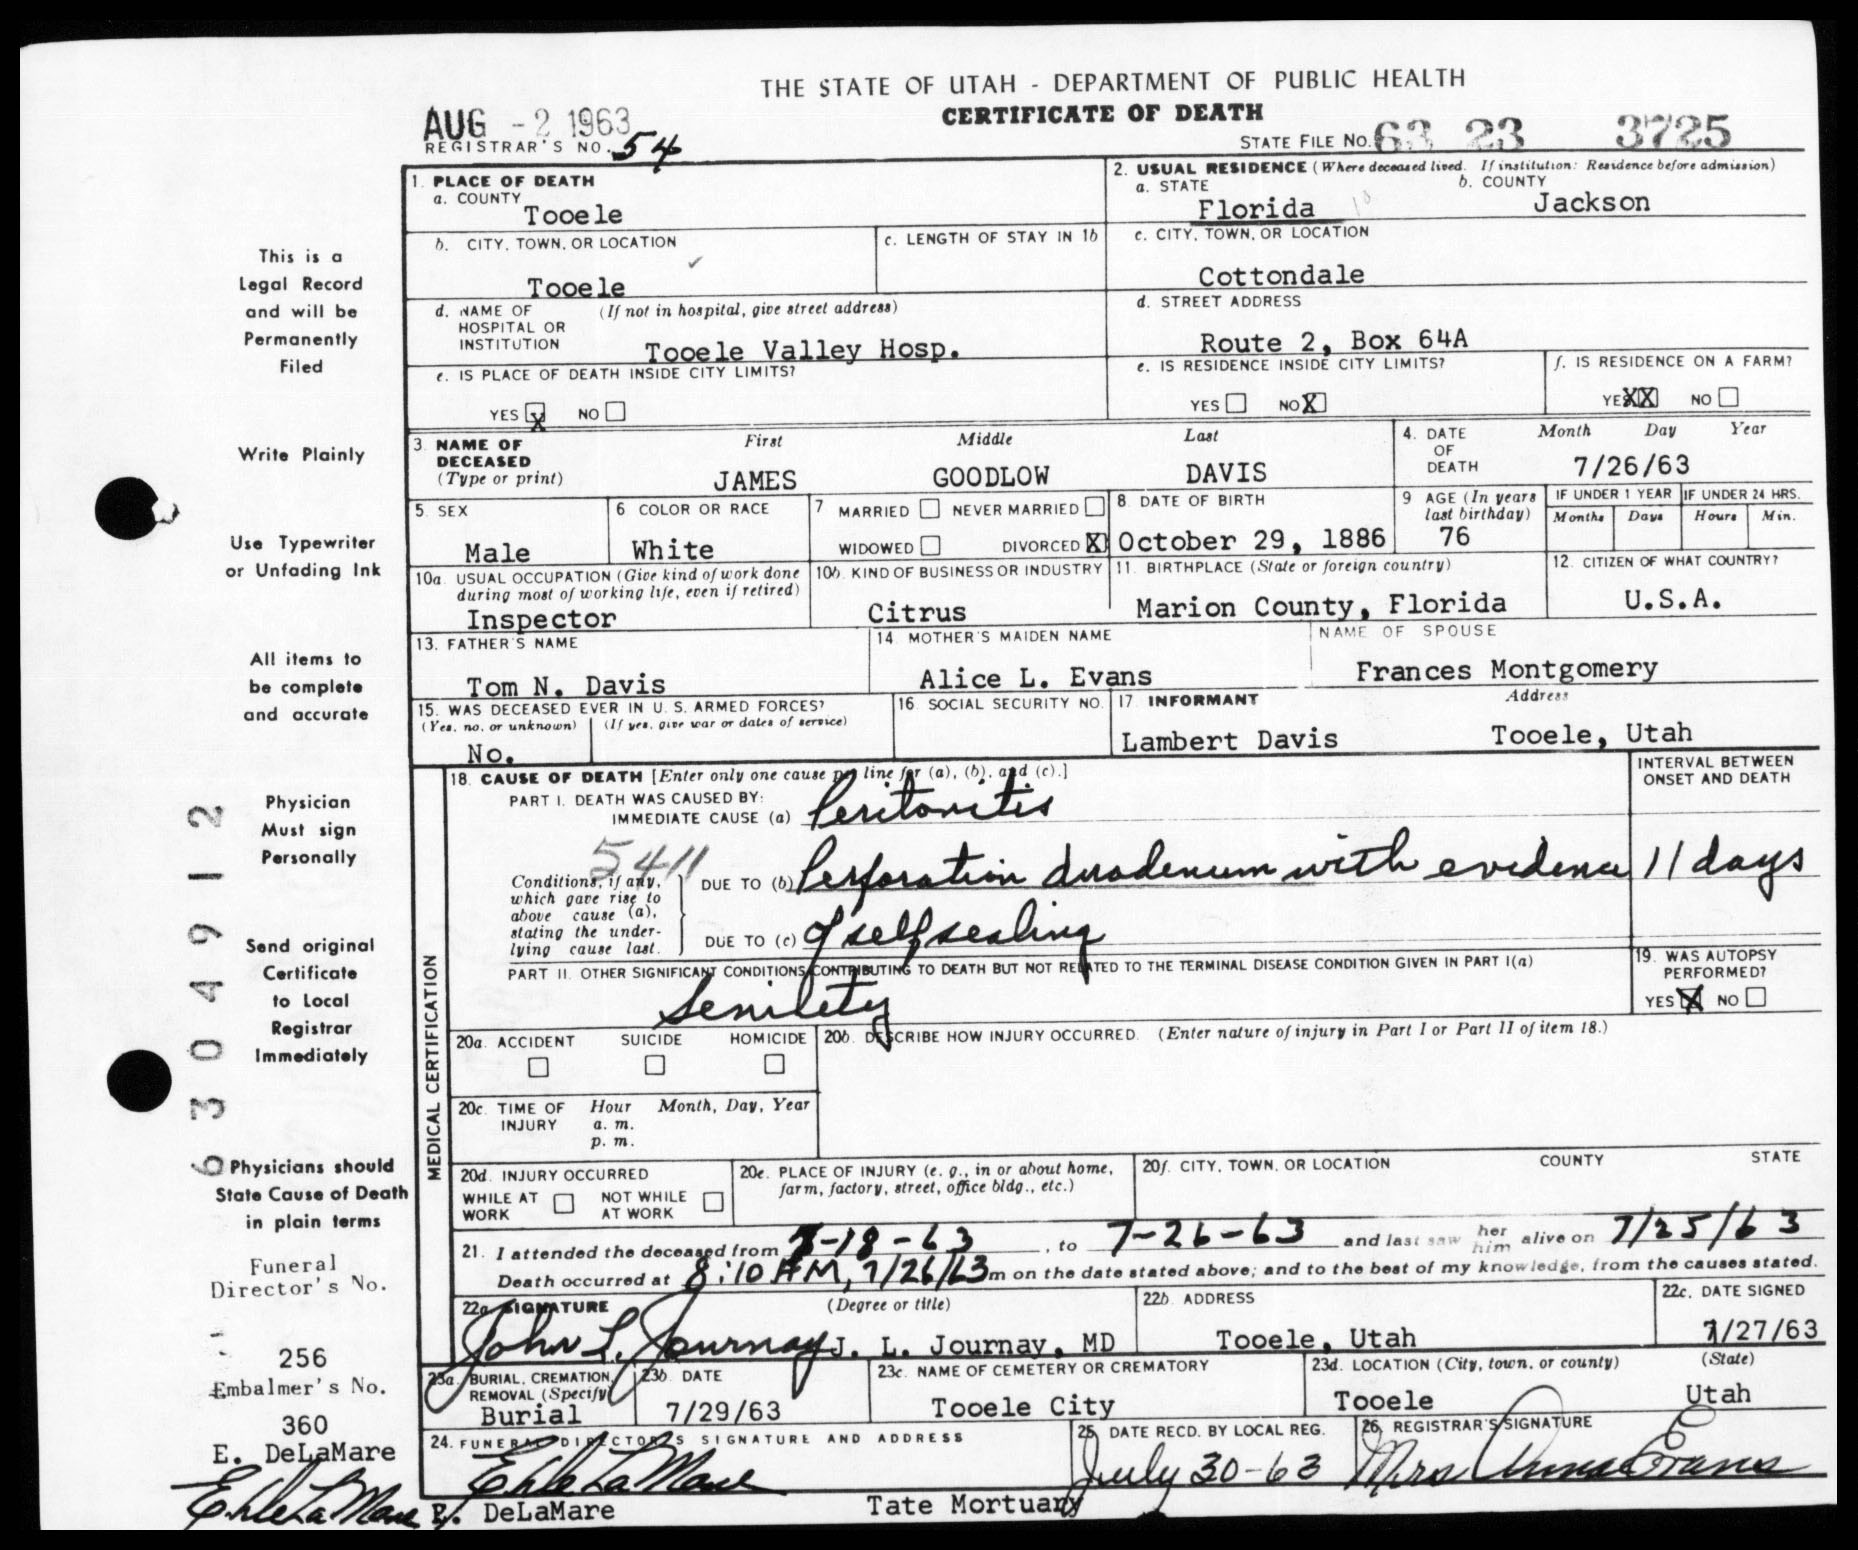 THE STATE OF UTAH - DEPARTMENT OF PUBLIC HEALTH
CERTIFICATE OF DEATH
AUG - 2 1963
REGISTRAR'S NO. 54
STATE FILE NO. 63 23 3725
1. PLACE OF DEATH
a. COUNTY
Tooele
2. USUAL RESIDENCE (Where deceased lived. If institution: Residence before admission)
a. STATE b. COUNTY
Florida Jackson
b. CITY, TOWN, OR LOCATION
Tooele
c. LENGTH OF STAY IN 1b
c. CITY, TOWN, OR LOCATION
Cottondale
d. NAME OF HOSPITAL OR INSTITUTION (If not in hospital, give street address)
Tooele Valley Hosp.
d. STREET ADDRESS
Route 2, Box 64A
e. IS PLACE OF DEATH INSIDE CITY LIMITS?
YES X NO
e. IS RESIDENCE INSIDE CITY LIMITS?
YES NO X
f. IS RESIDENCE ON A FARM?
YES XX NO
3. NAME OF DECEASED (Type or print)
First Middle Last
JAMES GOODLOW DAVIS
4. DATE OF DEATH Month Day Year
7/26/63
5. SEX
Male
6 COLOR OR RACE
White
7 MARRIED NEVER MARRIED
WIDOWED DIVORCED X
8. DATE OF BIRTH
October 29, 1886
9 AGE (In years last birthday)
76
IF UNDER 1 YEAR IF UNDER 24 HRS.
Months Days Hours Min.
10a. USUAL OCCUPATION (Give kind of work done during most of working life, even if retired)
Inspector
10b. KIND OF BUSINESS OR INDUSTRY
Citrus
11. BIRTHPLACE (State or foreign country)
Marion County, Florida
12. CITIZEN OF WHAT COUNTRY?
U.S.A.
13. FATHER'S NAME
Tom N. Davis
14. MOTHER'S MAIDEN NAME
Alice L. Evans
NAME OF SPOUSE
Frances Montgomery
15. WAS DECEASED EVER IN U. S. ARMED FORCES?
(Yes, no, or unknown) (If yes, give war or dates of service)
No.
16. SOCIAL SECURITY NO.
17. INFORMANT Address
Lambert Davis Tooele, Utah
MEDICAL CERTIFICATION
18. CAUSE OF DEATH [Enter only one cause per line for (a), (b), and (c).]
INTERVAL BETWEEN ONSET AND DEATH
PART I. DEATH WAS CAUSED BY:
IMMEDIATE CAUSE (a) Peritonitis
5411
Conditions, if any, which gave rise to above cause (a), stating the underlying cause last.
DUE TO (b) Perforation duodenum with evidence 11 days
DUE TO (c) of self sealing
PART II. OTHER SIGNIFICANT CONDITIONS CONTRIBUTING TO DEATH BUT NOT RELATED TO THE TERMINAL DISEASE CONDITION GIVEN IN PART I(a)
Senilety
19. WAS AUTOPSY PERFORMED?
YES X NO
20a. ACCIDENT SUICIDE HOMICIDE
20b. DESCRIBE HOW INJURY OCCURRED. (Enter nature of injury in Part I or Part II of item 18.)
20c. TIME OF INJURY Hour Month, Day, Year
a. m.
p. m.
20d. INJURY OCCURRED
WHILE AT WORK NOT WHILE AT WORK
20e. PLACE OF INJURY (e. g., in or about home, farm, factory, street, office bldg., etc.)
20f. CITY, TOWN, OR LOCATION COUNTY STATE
21. I attended the deceased from 7-18-63, to 7-26-63 and last saw her him alive on 7/25/63
Death occurred at 8:10 AM, 7/26/63 m on the date stated above; and to the best of my knowledge, from the causes stated.
22a. SIGNATURE (Degree or title)
John L. Journay J. L. Journay, MD
22b. ADDRESS
Tooele, Utah
22c. DATE SIGNED
7/27/63
23a. BURIAL, CREMATION, REMOVAL (Specify)
Burial
23b. DATE
7/29/63
23c. NAME OF CEMETERY OR CREMATORY
Tooele City
23d. LOCATION (City, town, or county) (State)
Tooele Utah
24. FUNERAL DIRECTOR'S SIGNATURE AND ADDRESS
E. DeLaMare Tate Mortuary
25. DATE RECD. BY LOCAL REG.
July 30-63
26. REGISTRAR'S SIGNATURE
Mrs Anna Evans
This is a
Legal Record
and will be
Permanently
Filed
Write Plainly
Use Typewriter
or Unfading Ink
All items to
be complete
and accurate
Physician
Must sign
Personally
Send original
Certificate
to Local
Registrar
Immediately
Physicians should
State Cause of Death
in plain terms
6304912
Funeral
Director's No.
256
Embalmer's No.
360
E. DeLaMare